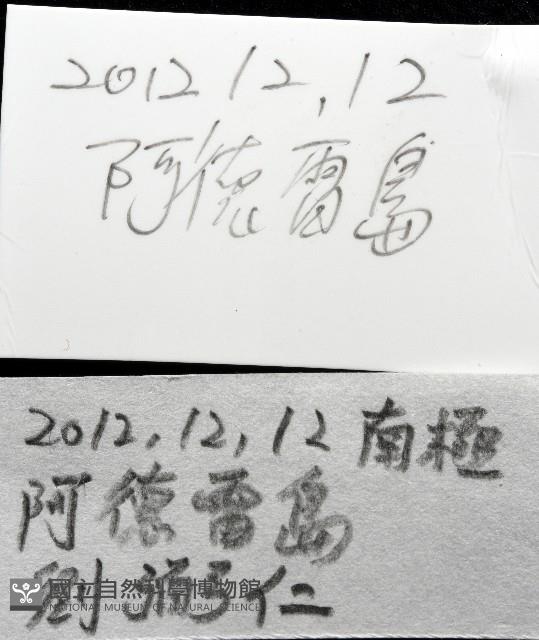 2012 12,12
阿德雷島
2012,12,12 南極
阿德雷島
劉 仁
國立自然科學博物館
NATIONAL MUSEUM OF NATURAL SCIENCE